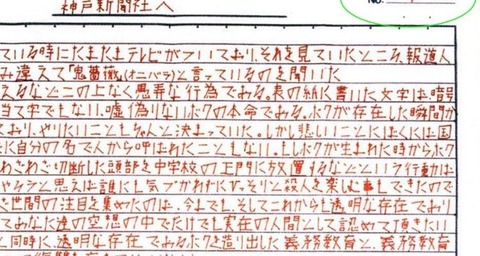 神戸新聞社へ
No.
ている時にたまたまテレビがついており、それを見ていたところ、報道人
み違えて「鬼薔薇」(オニバラ)と言っているのを聞いた
えるなどこの上なく愚弄な行為である。表の紙に書いた文字は暗号
当て字でもない、嘘偽りないボクの本命である。ボクが存在した瞬間か
ており、やりたいこともちゃんと決まっていた。しかし悲しいことにぼくには国
に自分の名で人から呼ばれたこともない。もしボクが生まれた時からボク
わざわざ切断した頭部を中学校の正門に放置するなどという行動は
やろうと思えば誰にも気づかれずにひっそりと殺人を楽しむ事もできたので
て世間の注目を集めたのは、今までも、そしてこれからも透明な存在であり
てあなた達の空想の中でだけでも実在の人間として認めて頂きたい
と同時に、透明な存在であるボクを造り出した義務教育と、義務教育